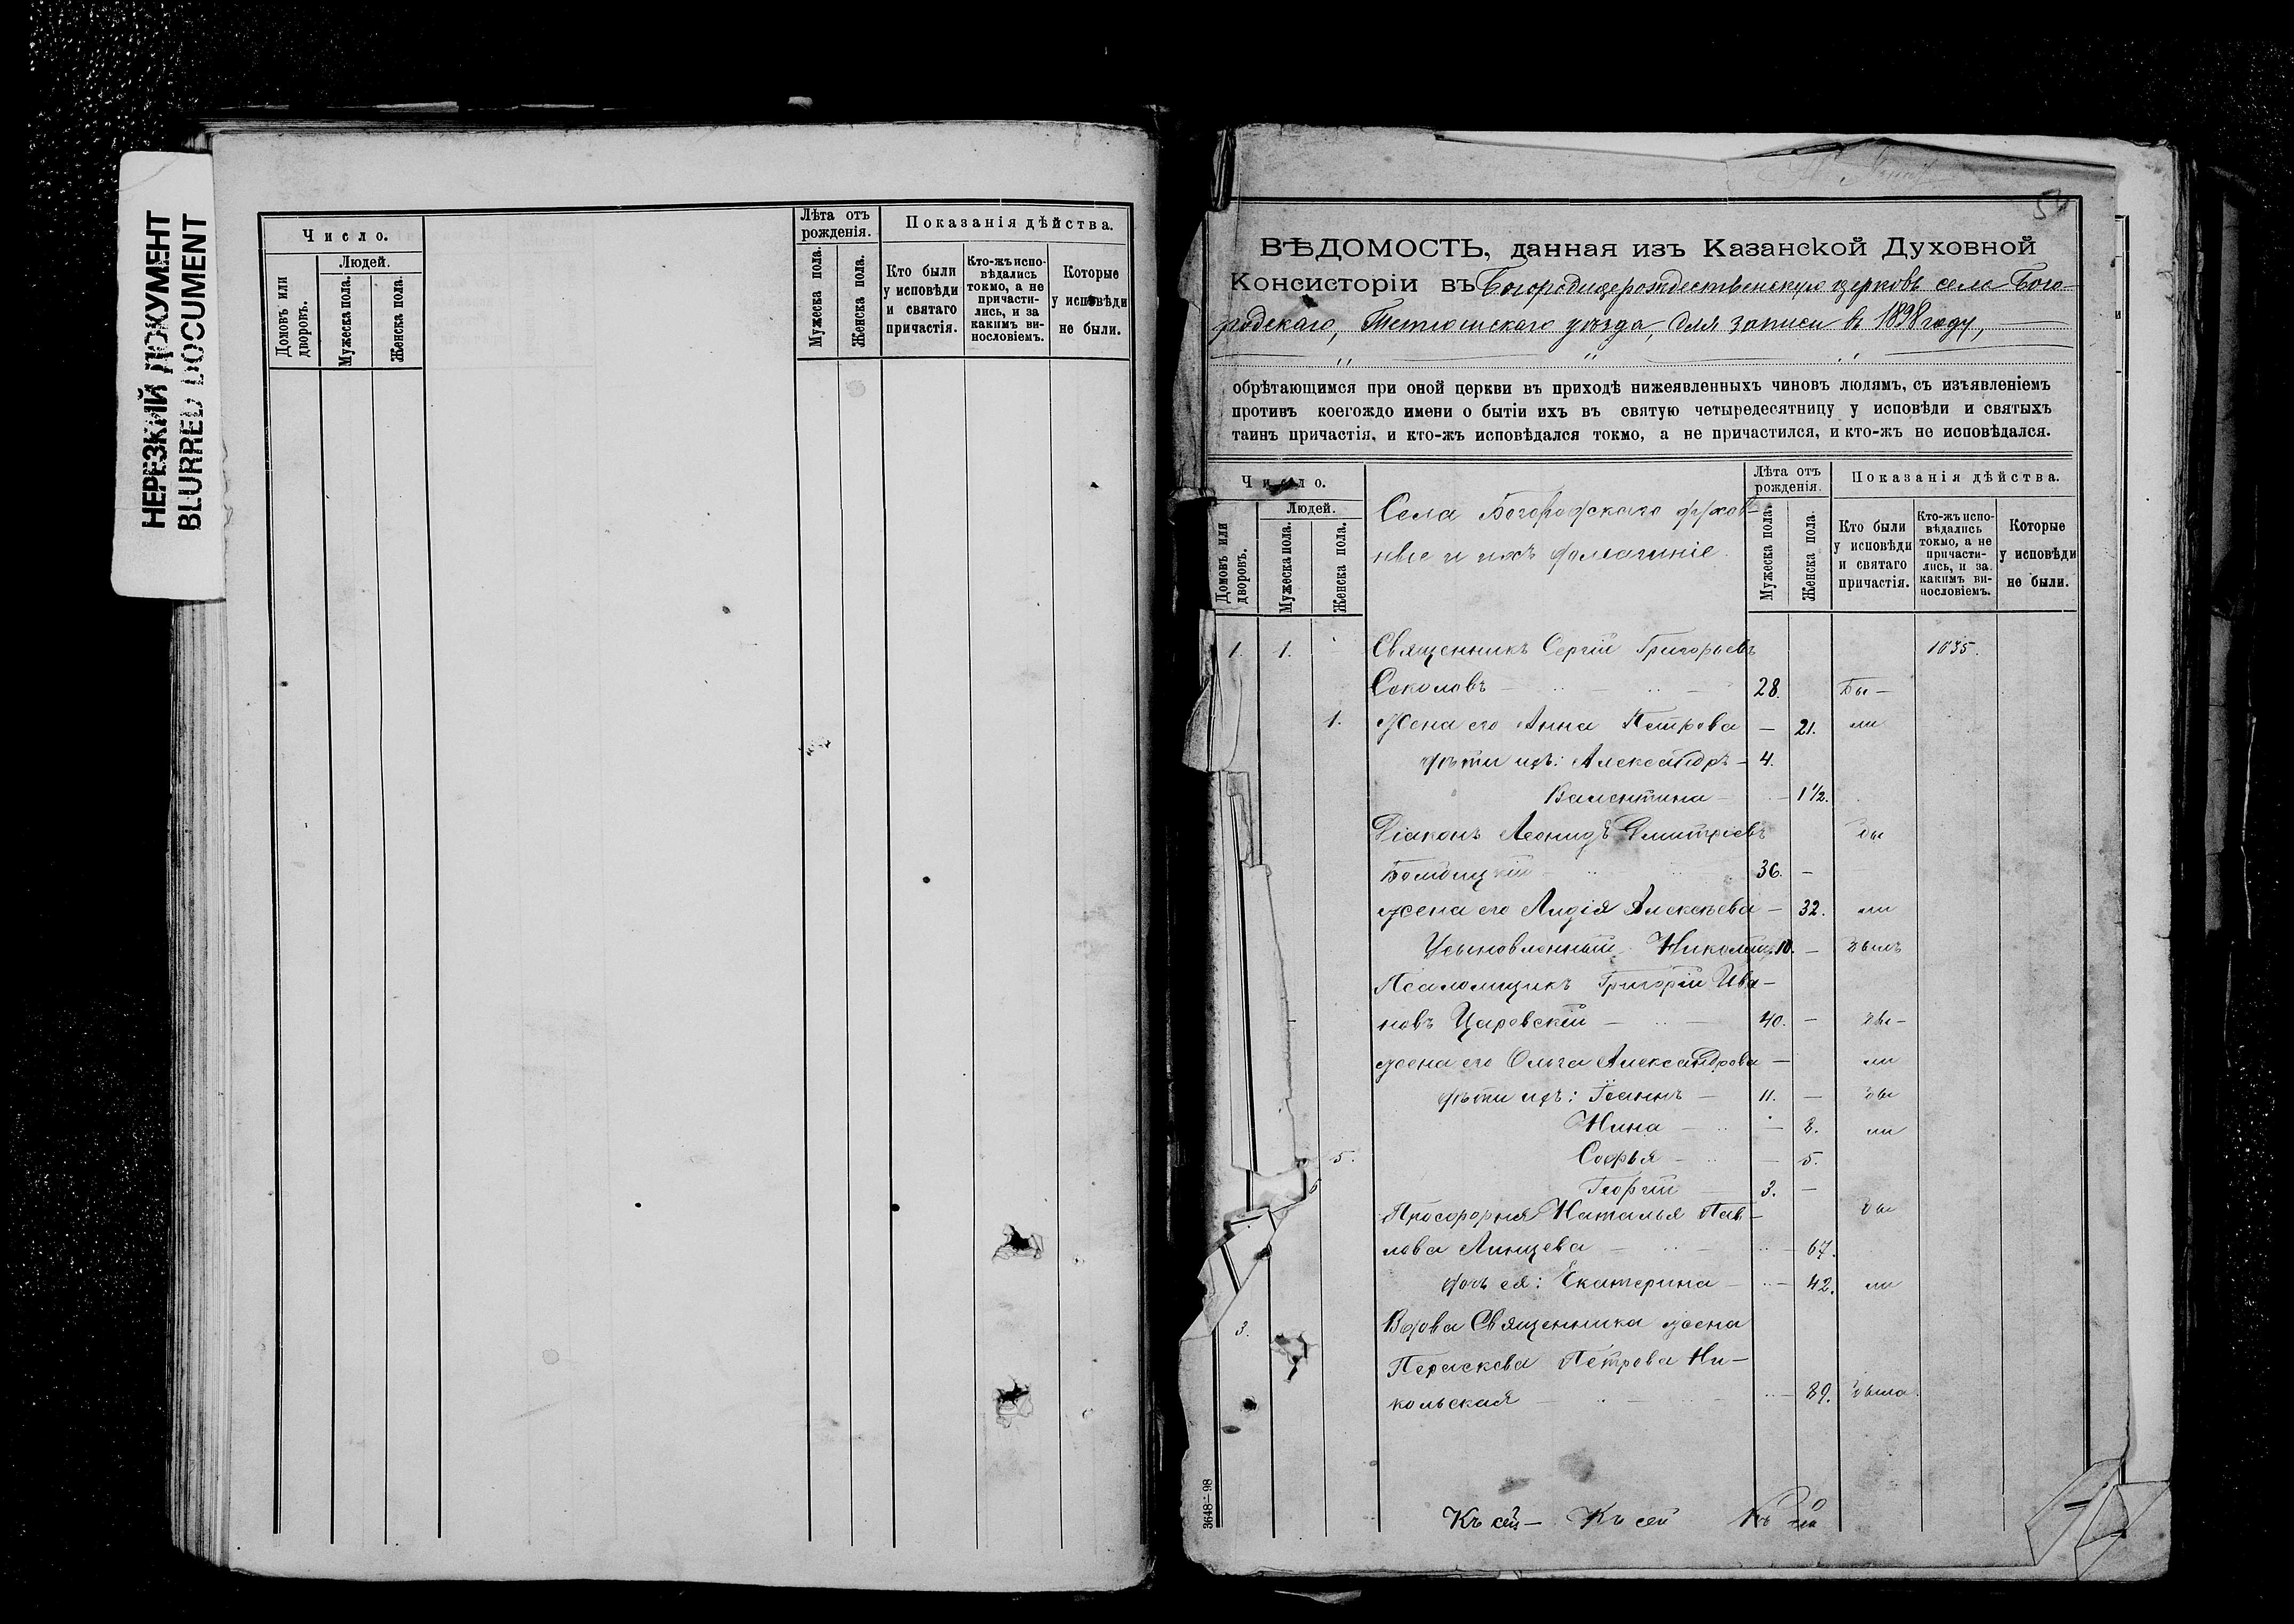 НЕРЕЗКИЙ ДОКУМЕНТ
BLURRED DOCUMENT
Число.
Людей.
Домовъ или дворовъ.
Мужеска пола.
Женска пола.
Лѣта отъ рожденія.
Мужеска пола.
Женска пола.
Показанія дѣйства.
Кто были у исповѣди и святаго причастія.
Кто-жъ исповѣдались токмо, а не причастились, и за какимъ винословіемъ.
Которые у исповѣди не были.
54
ВѢДОМОСТЬ, данная изъ Казанской Духовной
Консисторіи въ Богородицерождественскую церковь села Бого-
родскаго, Тетюшскаго уѣзда, для записи въ 1898 году,
обрѣтающимся при оной церкви въ приходѣ нижеявленныхъ чиновъ людямъ, съ изъявленіемъ
противъ коегождо имени о бытіи ихъ въ святую четыредесятницу у исповѣди и святыхъ
таинъ причастія, и кто-жъ исповѣдался токмо, а не причастился, и кто-жъ не исповѣдался.
Число.
Людей.
Домовъ или дворовъ.
Мужеска пола.
Женска пола.
Села Богородскаго духов-
ные и ихъ домашніе.
Лѣта отъ рожденія.
Мужеска пола.
Женска пола.
Показанія дѣйства.
Кто были у исповѣди и святаго причастія.
Кто-жъ исповѣдались токмо, а не причастились, и за какимъ винословіемъ.
Которые у исповѣди не были.
1. 1. Священникъ Сергій Григорьевъ 1635.
Соколовъ 28. Бы-
1. Жена его Анна Петрова — 21. ли
дѣти ихъ: Александръ — 4.
Валентина — 1½.
Діаконъ Леонидъ Дмитріевъ бы
36. —
жена его Лидія Алексѣева — 32. ли
Усыновленный Николай 10. — былъ
Псаломщикъ Григорій Ива-
новъ Царевскій — 40. — бы-
жена его Ольга Александрова — ли
дѣти ихъ: Іоаннъ — 11. — бы
Нина — 8. ли
5. Софья — 5.
Георгій 3. —
Просфорня Наталья Пав-
бы
лова — 67.
дочь ея: Екатерина — 42. ли
3. Вдова Священника жена
Параскева Петрова Ни-
кольская — 89. была.
Къ сей — Къ сей Къ
3648—98